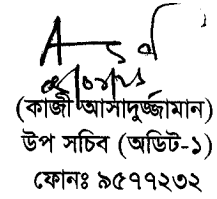 (কাজী আসাদুর্জ্জামান)
উপ সচিব (অডিট-১)
ফোনঃ ৯৫৭৭২৩২